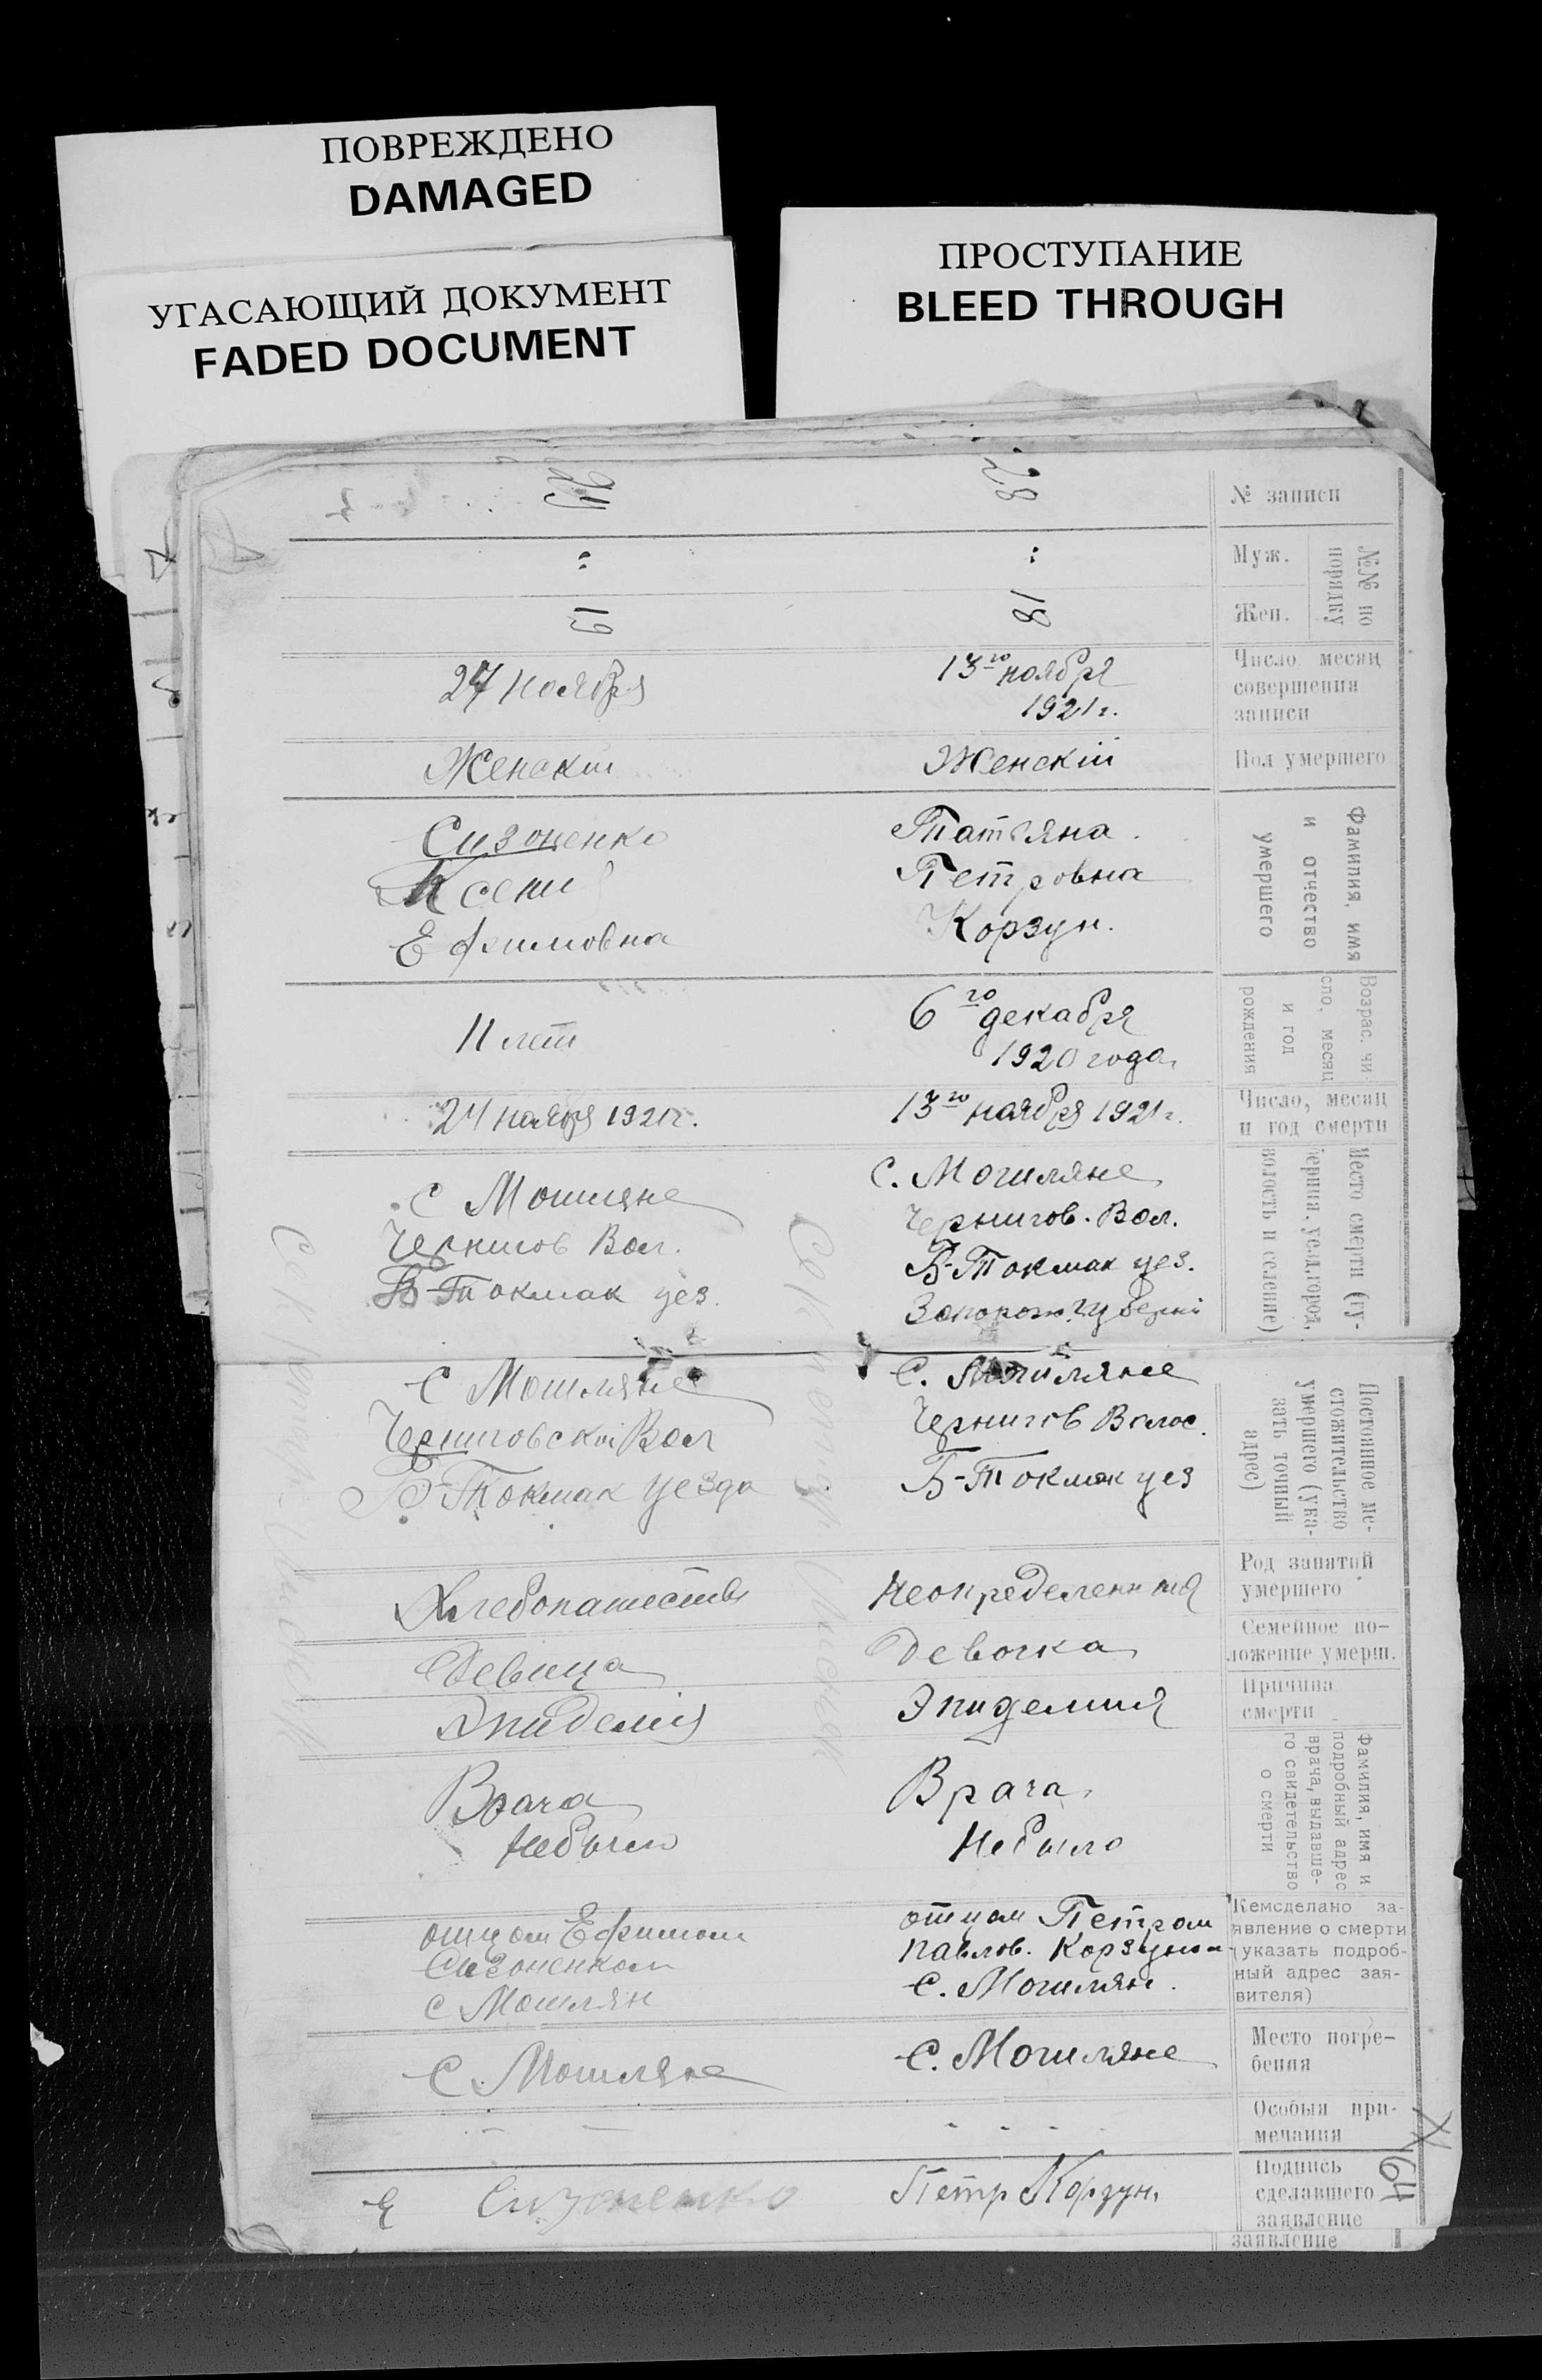 ПОВРЕЖДЕНО
DAMAGED
УГАСАЮЩИЙ ДОКУМЕНТ
FADED DOCUMENT
ПРОСТУПАНИЕ
BLEED THROUGH
№ записи
28
29
№№ по
порядку
Муж.
Жен.
:
:
18
19
Число, месяц
совершения
записи
13го ноября
1921 г.
27 ноября
Пол умершего
Женскій
Женскій
Фамилия, имя
и отчество
умершего
Татьяна
Петровна
Корзун.
Сизоненко
Ксения
Ефимовна
Возрас. чи
сло, месяц
и год
рождения
6го декабря
1920 года
11 лет
Число, месяц
и год смерти
13го ноября 1921 г.
24 ноября 1921 г.
Место смерти (гу-
берния, уезд, город,
волость и селение)
С. Могиляне
Чернигов. Вол.
Б-Токмак уез.
Запорож. губерні
С Могиляне
Чернигов Вол.
Б-Токмак уез.
Постоянное ме-
стожительство
умершего (ука-
зать точный
адрес)
С. Могиляне
Чернигов Волос.
Б-Токмак уез
С Могиляне
Черниговской Вол
Б-Токмак уезда
Род занятий
умершего
Неопределенный
Хлебопашество
Семейное по-
ложение умерш.
Девочка
Девица
Причина
смерти
Эпидемия
Эпидемія
Фамилия, имя и
подробный адрес
врача, выдавше-
го свидетельство
о смерти
Врача
Небыло
Врача
Небыло
Кемсделано за-
явление о смерти
(указать подроб-
ный адрес зая-
вителя)
отцом Петром
Павлов. Корзуном
С. Могилян.
отцом Ефимом
Сизоненком
с Могилян
Место погре-
бения
С. Могиляне
С. Могиляне
Особыя при-
мечания
- - - -
Подпись
сделавшего
заявление
заявление
Петр Корзун.
Е Сизоненко
64